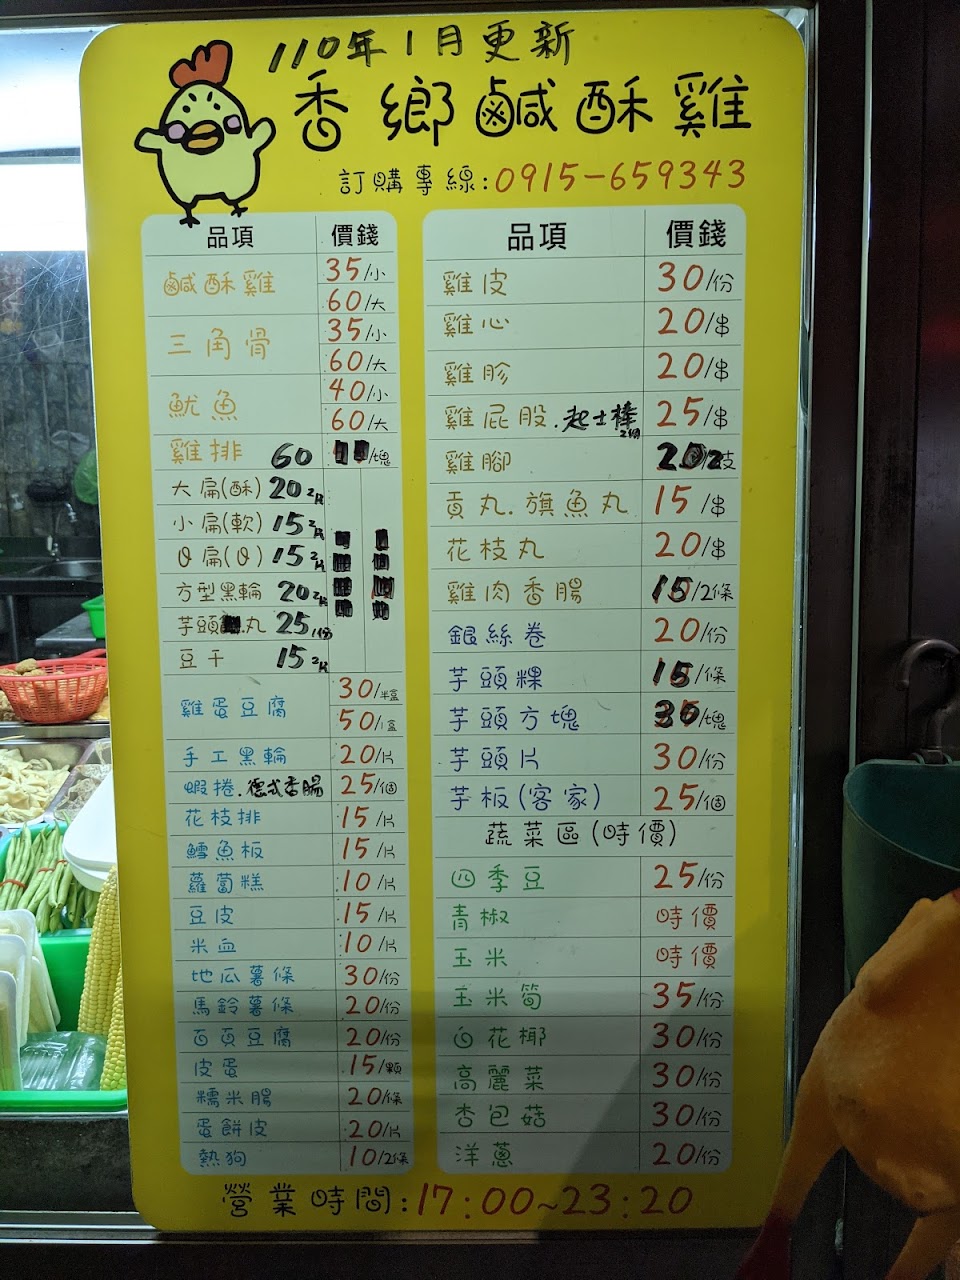 110年1月更新
香鄉鹹酥雞
訂購專線:0915-659343
品項 價錢
鹹酥雞 35/小
60/大
三角骨 35/小
60/大
魷魚 40/小
60/大
雞排 60 /塊
大扁(酥) 20 2片
小扁(軟) 15 2片
Q扁(Q) 15 2片
方型黑輪 20 2片
芋頭丸 25/份
豆干 15 2片
雞蛋豆腐 30/半盒
50/1盒
手工黑輪 20/片
蝦捲.德式香腸 25/個
花枝排 15/片
鱈魚板 15/片
蘿蔔糕 10/片
豆皮 15/片
米血 10/片
地瓜薯條 30/份
馬鈴薯條 20/份
百頁豆腐 20/份
皮蛋 15/顆
糯米腸 20/條
蛋餅皮 20/片
熱狗 10/2條
品項 價錢
雞皮 30/份
雞心 20/串
雞胗 20/串
雞屁股.起士棒 2個 25/串
雞腳 20 2支
貢丸.旗魚丸 15/串
花枝丸 20/串
雞肉香腸 15/2條
銀絲卷 20/份
芋頭粿 15/條
芋頭方塊 30/塊
芋頭片 30/份
芋板(客家) 25/個
蔬菜區(時價)
四季豆 25/份
青椒 時價
玉米 時價
玉米筍 35/份
白花椰 30/份
高麗菜 30/份
杏包菇 30/份
洋蔥 20/份
營業時間:17:00~23:20